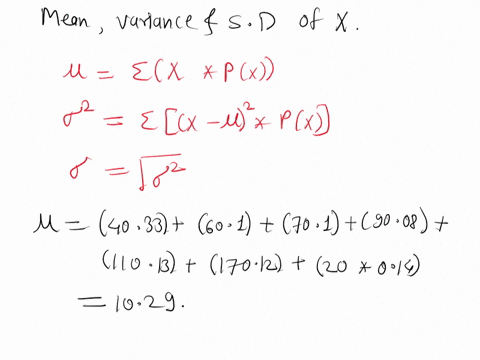 Mean, variance & S.D of X.
μ = Σ(X * P(x))
σ² = Σ[(x - μ)² * P(x)]
σ = √σ²
μ = (40.33) + (60.1) + (70.1) + (90.08) +
(110.13) + (170.12) + (20 * 0.14)
= 10.29.